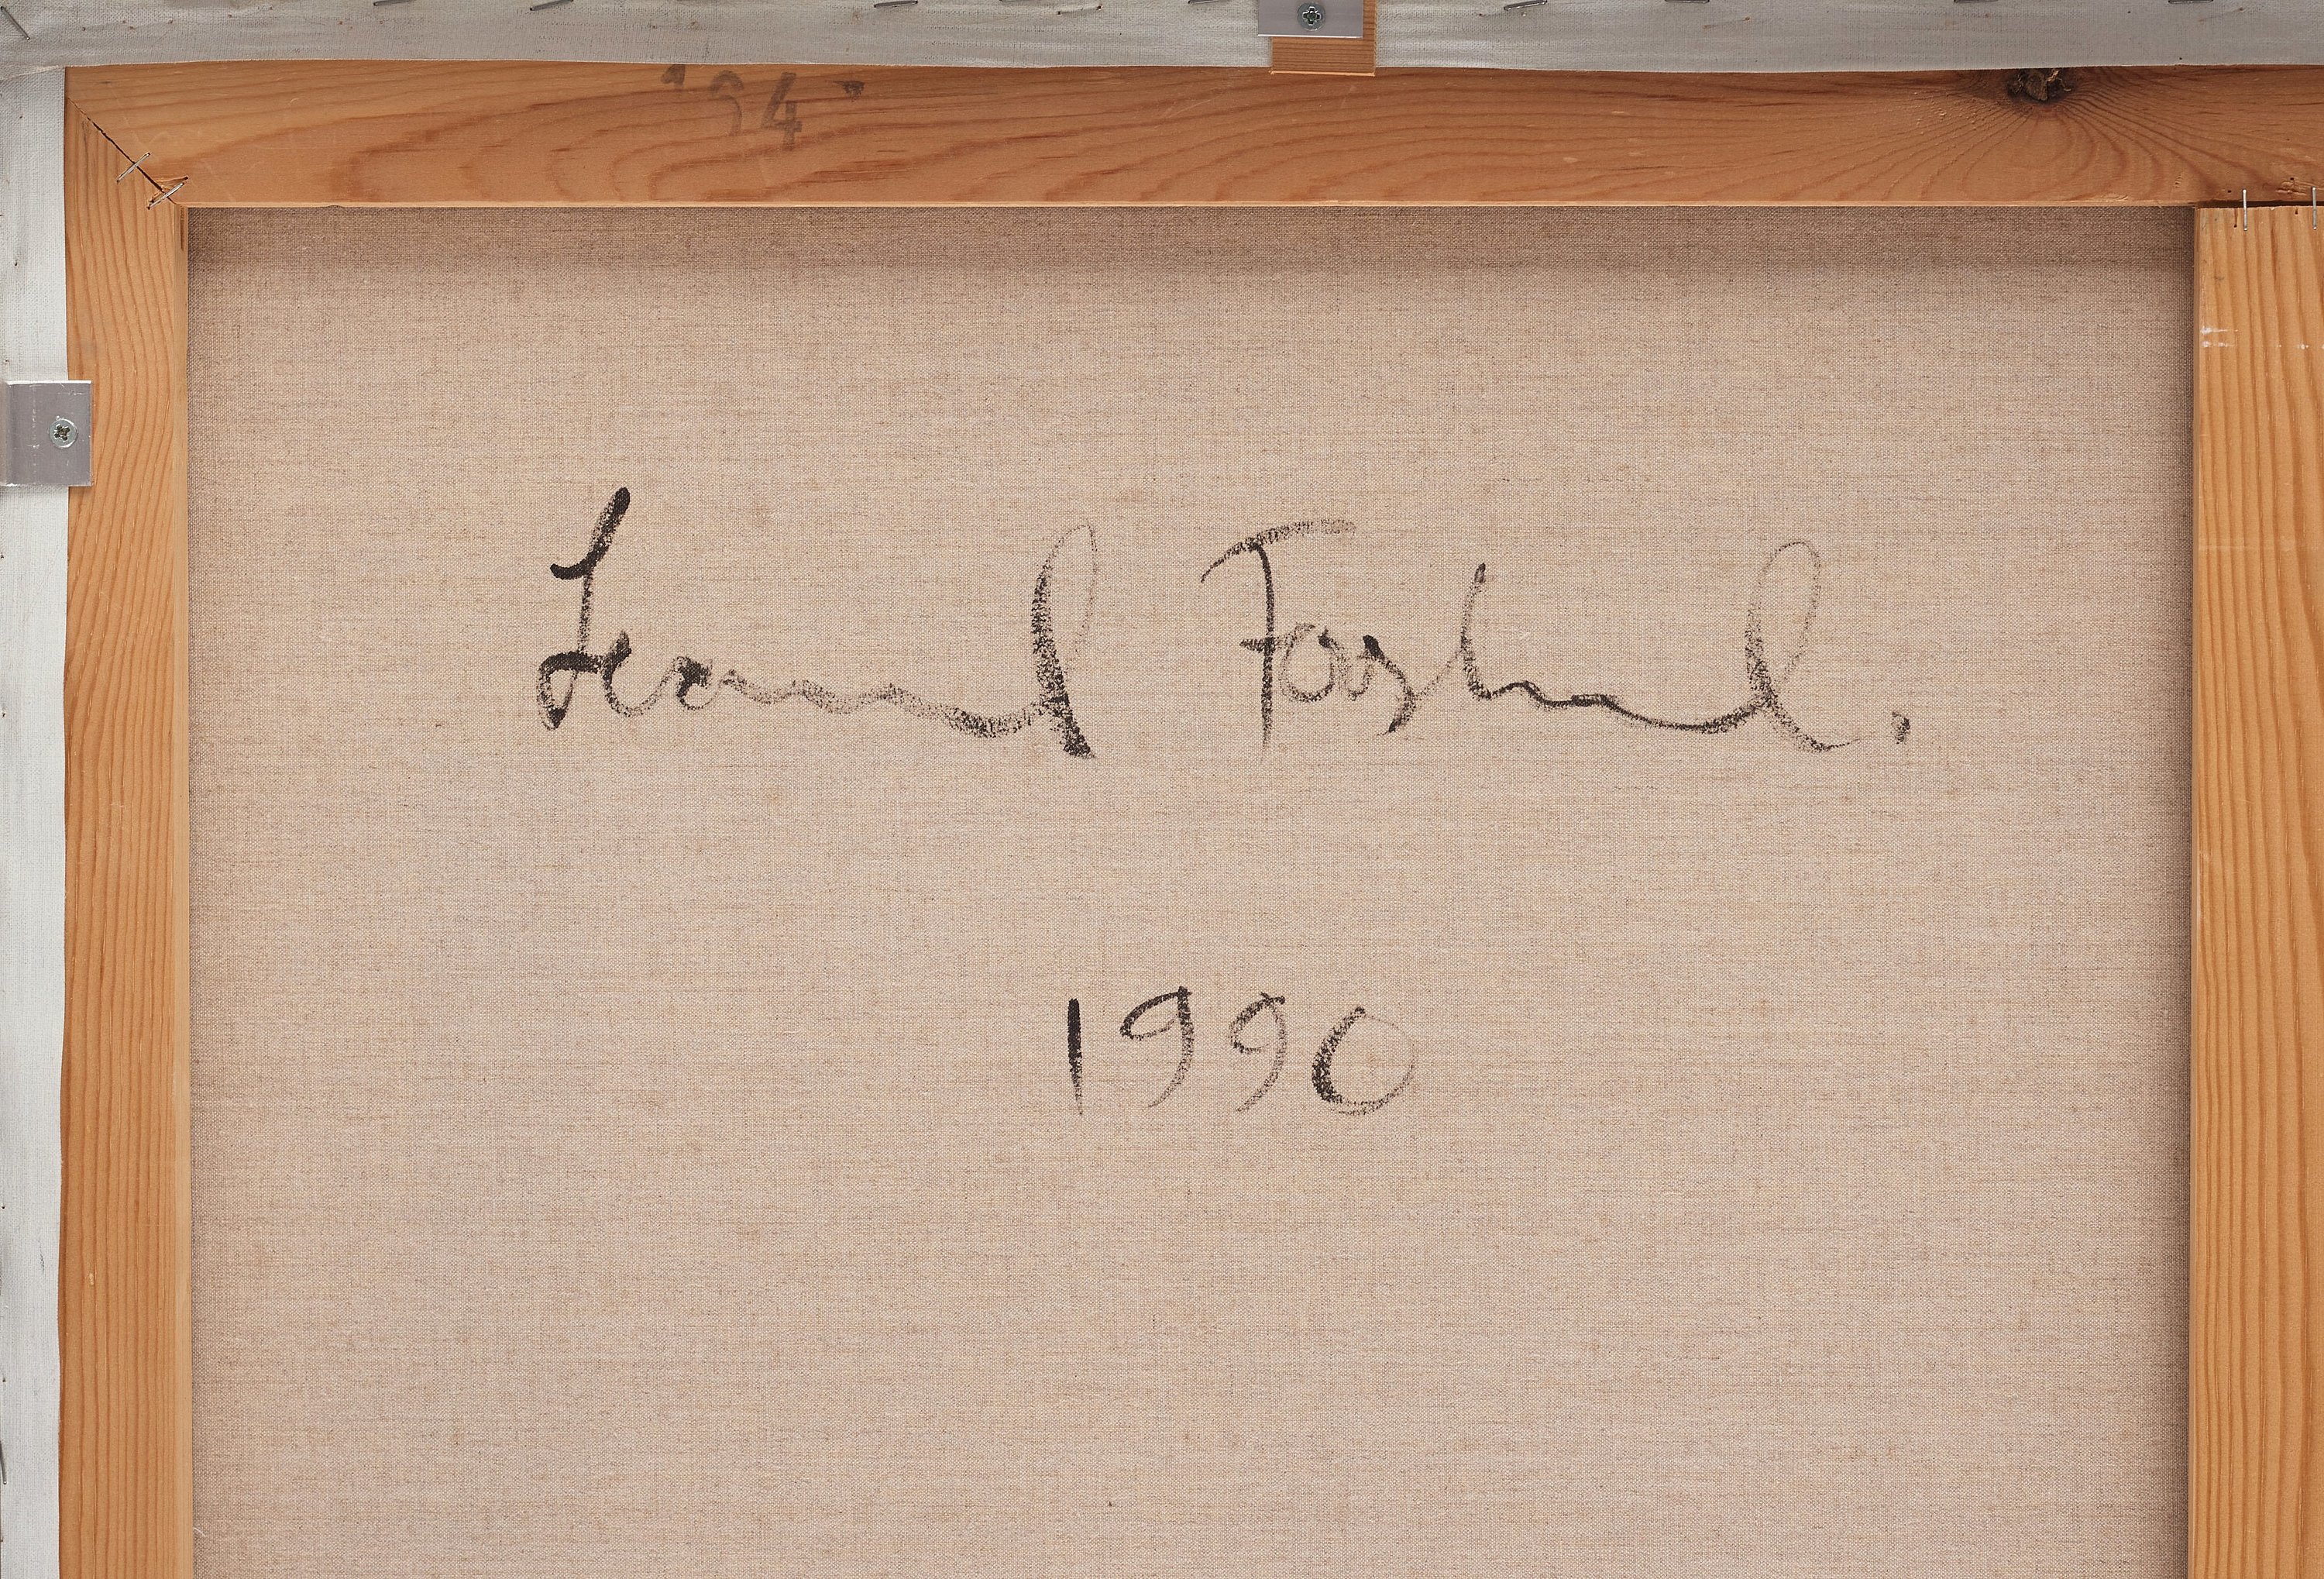 Leonard Forslund.
1990